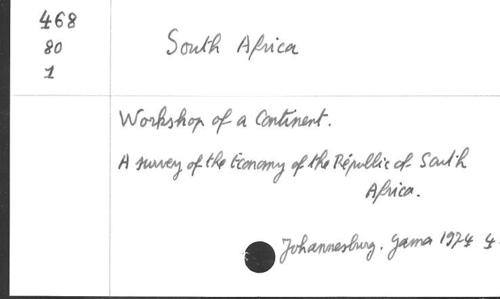 468
80
1
South Africa
Workshop of a Continent.
A survey of the Economy of the Républic of South
Africa.
Johannesburg. Gama 1974 4.